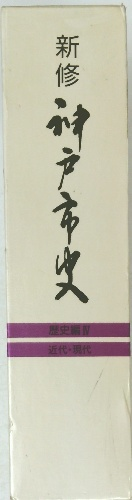 新修
神戸市史
歴史編Ⅳ
近代・現代